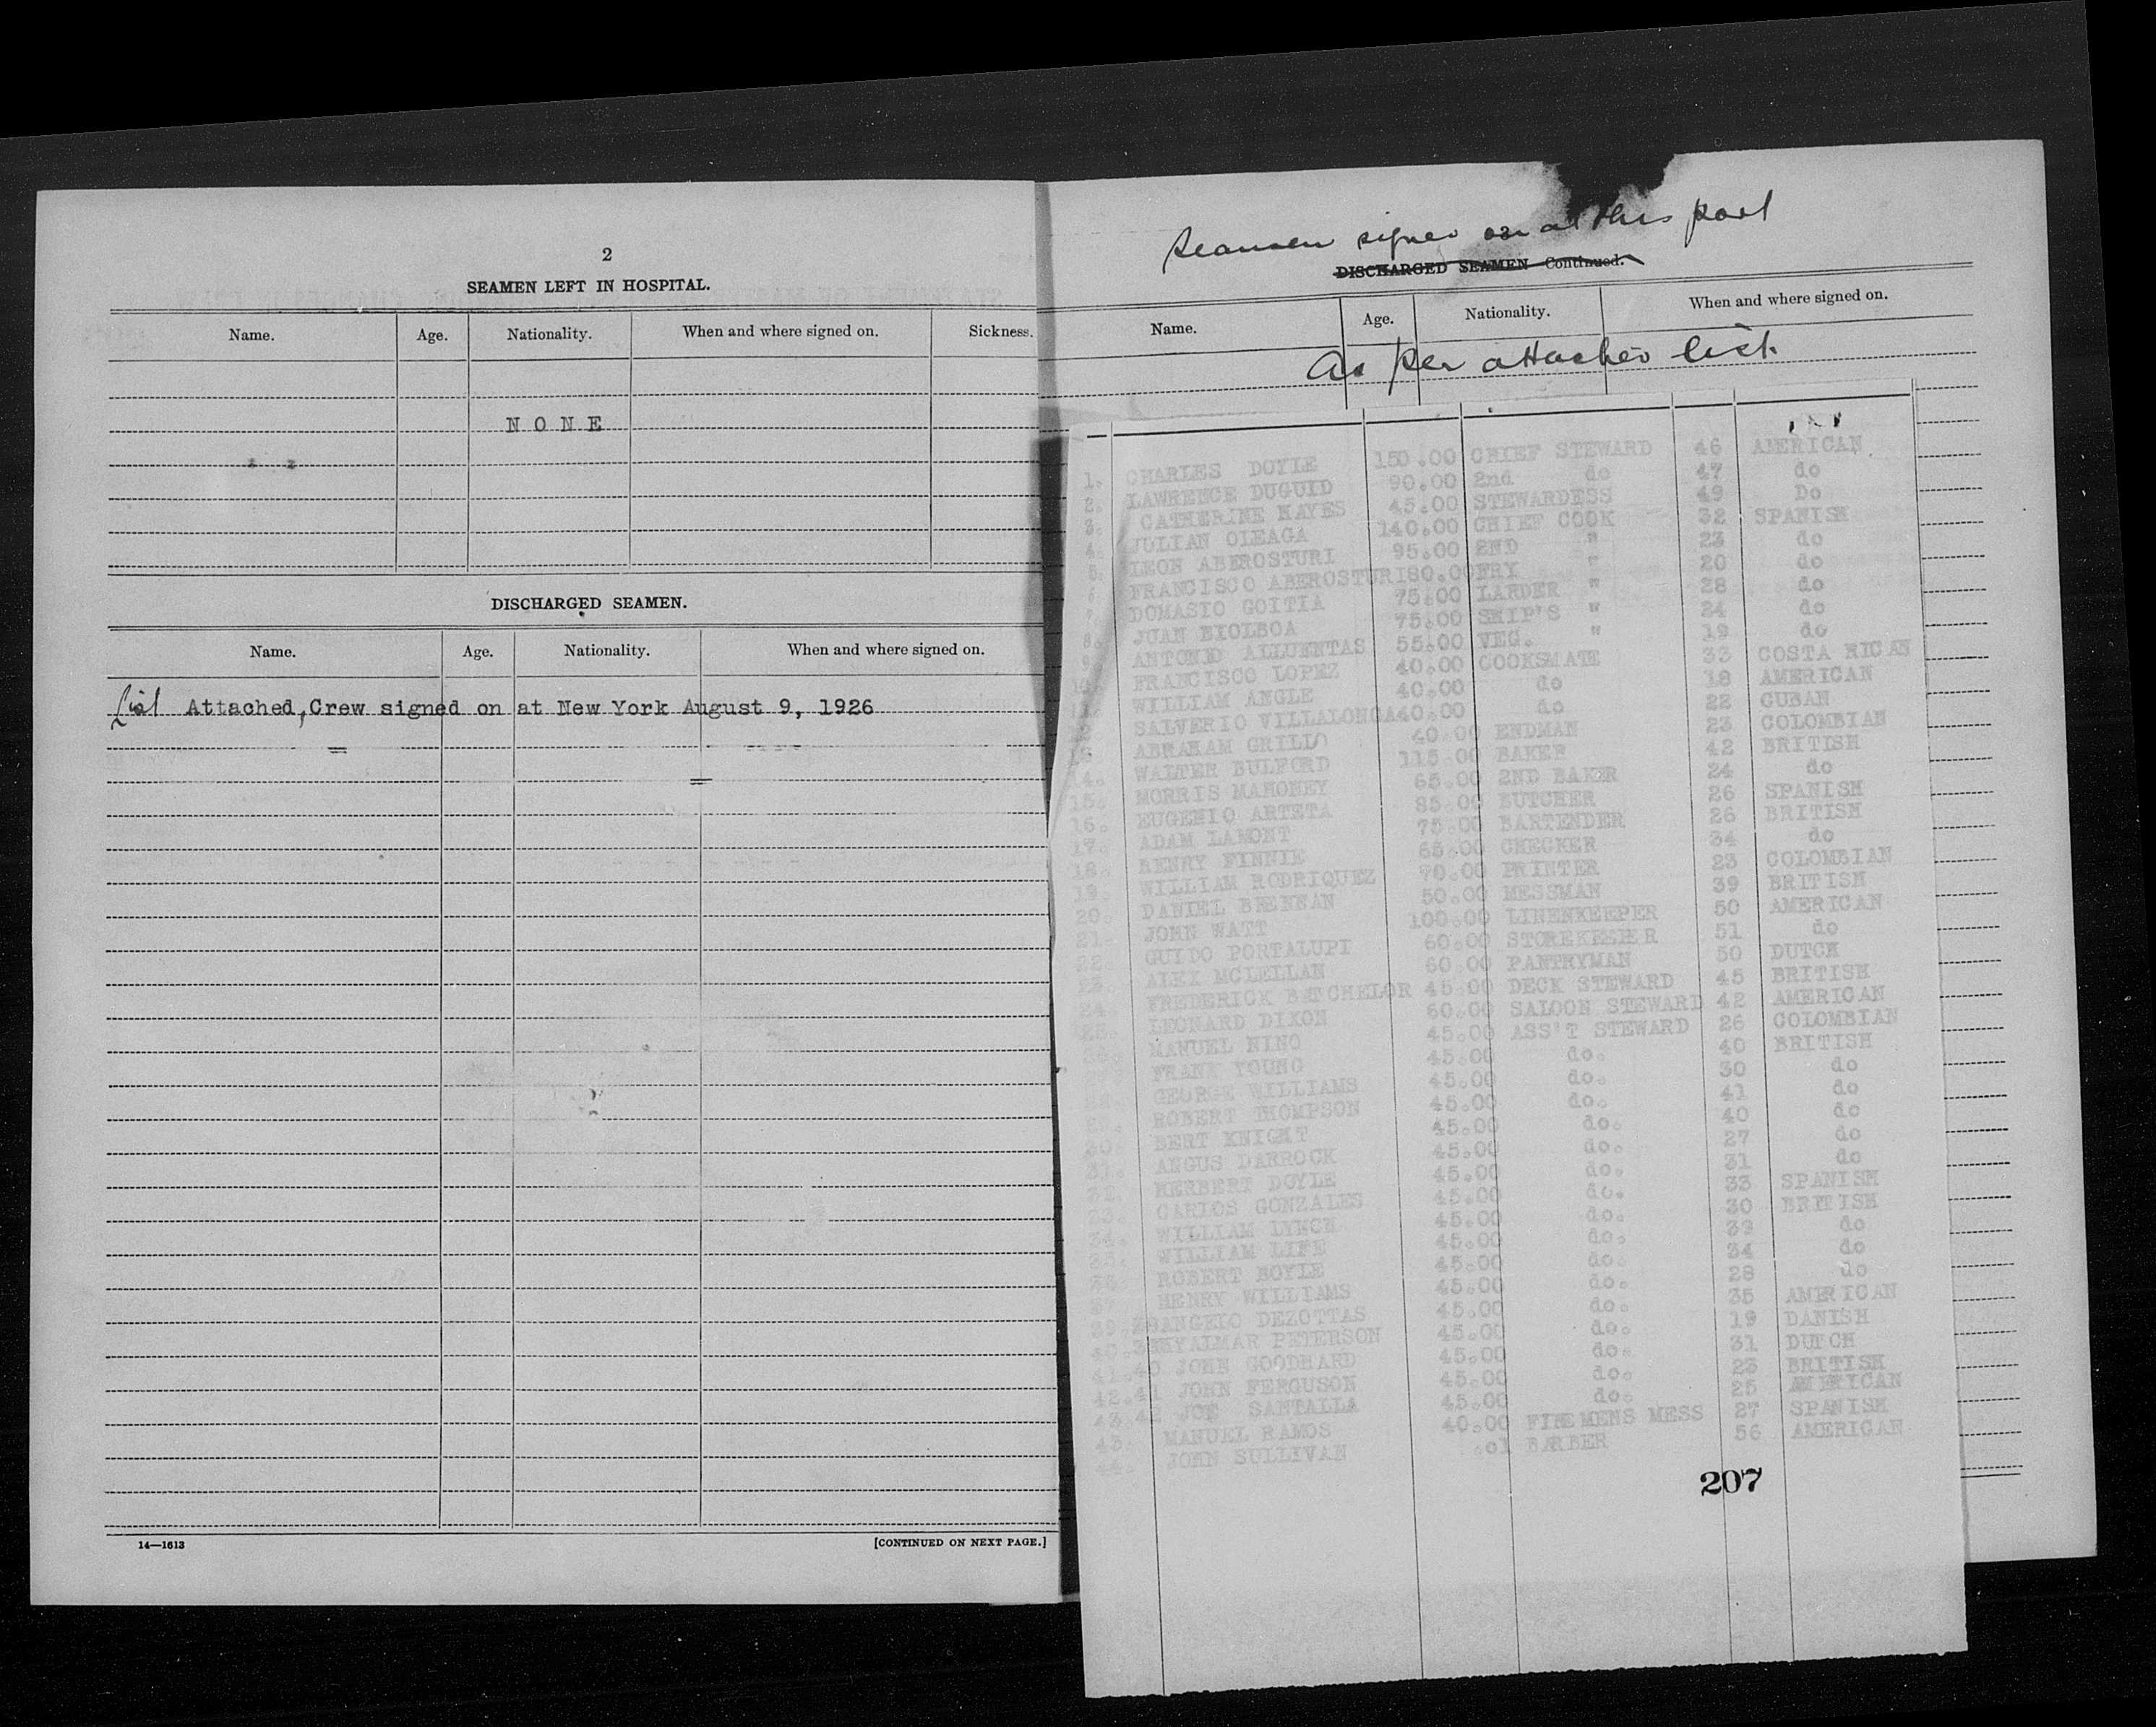 2
SEAMEN LEFT IN HOSPITAL.
Name. Age. Nationality. When and where signed on. Sickness.
NONE
DISCHARGED SEAMEN.
Name. Age. Nationality. When and where signed on.
List Attached, Crew signed on at New York August 9, 1926
14—1613
[CONTINUED ON NEXT PAGE.]
Seamen signed on at this port
DISCHARGED SEAMEN—Continued.
Name. Age. Nationality. When and where signed on.
As per attached list.
1. CHARLES DOYLE 150.00 CHIEF STEWARD 46 AMERICAN
2. LAWRENCE DUGUID 90.00 2nd do 47 do
3. CATHERINE HAYES 45.00 STEWARDESS 49 Do
4. JULIAN OLEAGA 140.00 CHIEF COOK 32 SPANISH
5. LEON ABEROSTURI 95.00 2ND " 23 do
6. FRANCISCO ABEROSTURI 80.00 FRY " 20 do
7. DOMASIO GOITIA 75.00 LARDER " 28 do
8. JUAN BIOLBOA 75.00 SHIP'S " 24 do
9. ANTONIO ALLUENTAS 55.00 VEG. " 19 do
FRANCISCO LOPEZ 40.00 COOKSMATE 33 COSTA RICAN
WILLIAM ANGLE 40.00 do 18 AMERICAN
SALVERIO VILLALONGA 40.00 do 22 CUBAN
ABRAHAM GRILLO 40.00 ENDMAN 23 COLOMBIAN
14. WALTER BULFORD 115.00 BAKER 42 BRITISH
15. MORRIS MAHONEY 65.00 2ND BAKER 24 do
16. EUGENIO ARTETA 85.00 BUTCHER 26 SPANISH
17. ADAM LAMONT 75.00 BARTENDER 26 BRITISH
18. HENRY FINNIE 65.00 CHECKER 34 do
19. WILLIAM RODRIQUEZ 70.00 PRINTER 23 COLOMBIAN
20. DANIEL BRENNAN 50.00 MESSMAN 39 BRITISH
21. JOHN WATT 100.00 LINENKEEPER 50 AMERICAN
22. GUIDO PORTALUPI 60.00 STOREKEEPER 51 do
23. ALEX MCLELLAN 60.00 PANTRYMAN 50 DUTCH
24. FREDERICK BETCHELOR 45.00 DECK STEWARD 45 BRITISH
25. LEONARD DIXON 60.00 SALOON STEWARD 42 AMERICAN
MANUEL NINO 45.00 ASS'T STEWARD 26 COLOMBIAN
FRANK YOUNG 45.00 do. 40 BRITISH
GEORGE WILLIAMS 45.00 do. 30 do
ROBERT THOMPSON 45.00 do. 41 do
30. BERT KNIGHT 45.00 do. 40 do
31. ANGUS DARROCK 45.00 do. 27 do
HERBERT DOYLE 45.00 do. 31 do
33. CARLOS GONZALES 45.00 do. 33 SPANISH
34. WILLIAM LYNCH 45.00 do. 30 BRITISH
35. WILLIAM LIFE 45.00 do. do
36. ROBERT BOYLE 45.00 do. 34 do
37. HENRY WILLIAMS 45.00 do. 28 do
ANGELO DEZOTTAS 45.00 do. 35 AMERICAN
HYALMAR PETERSON 45.00 do. 19 DANISH
41. 40 JOHN GOODHARD 45.00 do. 31 DUTCH
42. 41 JOHN FERGUSON 45.00 do. 23 BRITISH
43. 42 JOE SANTALLA 45.00 do. 25 AMERICAN
43. MANUEL RAMOS 40.00 FIREMENS MESS 27 SPANISH
44. JOHN SULLIVAN .01 BARBER 56 AMERICAN
207